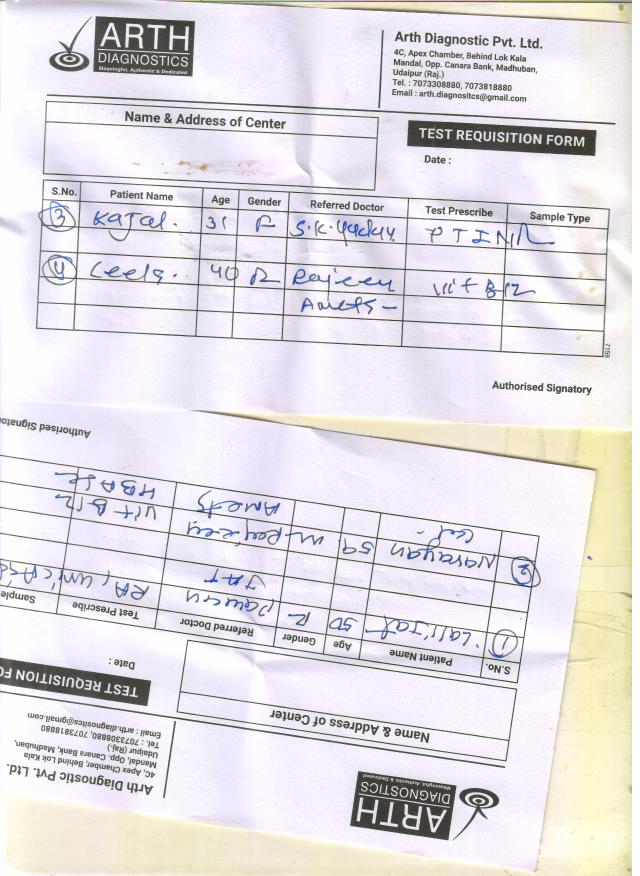 ARTH
DIAGNOSTICS
Meaningful, Authentic & Dedicated
Arth Diagnostic Pvt. Ltd.
4C, Apex Chamber, Behind Lok Kala
Mandal, Opp. Canara Bank, Madhuban,
Udaipur (Raj.)
Tel. : 7073308880, 7073818880
Email : arth.diagnositcs@gmail.com
Name & Address of Center
TEST REQUISITION FORM
Date :
S.No. Patient Name Age Gender Referred Doctor Test Prescribe Sample Type
3 Kajal. 31 F S.K. PTINR
4 Leela.. 40 Rajeev Vit B12
Amets
7158
Authorised Signatory
ARTH
DIAGNOSTICS
Meaningful, Authentic & Dedicated
Arth Diagnostic Pvt. Ltd.
4C, Apex Chamber, Behind Lok Kala
Mandal, Opp. Canara Bank, Madhuban,
Udaipur (Raj.)
Tel. : 7073308880, 7073818880
Email : arth.diagnositcs@gmail.com
Name & Address of Center
TEST REQUISITION FO
Date :
S.No. Patient Name Age Gender Referred Doctor Test Prescribe Sample
1 50 RA,
JAT
2 Narayan 59 M Rajeev Vit B12
Amets HBA1c
Authorised Signator